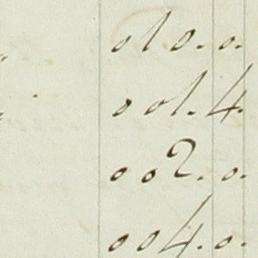 010.0.
001.4.
002.0.
004.0.